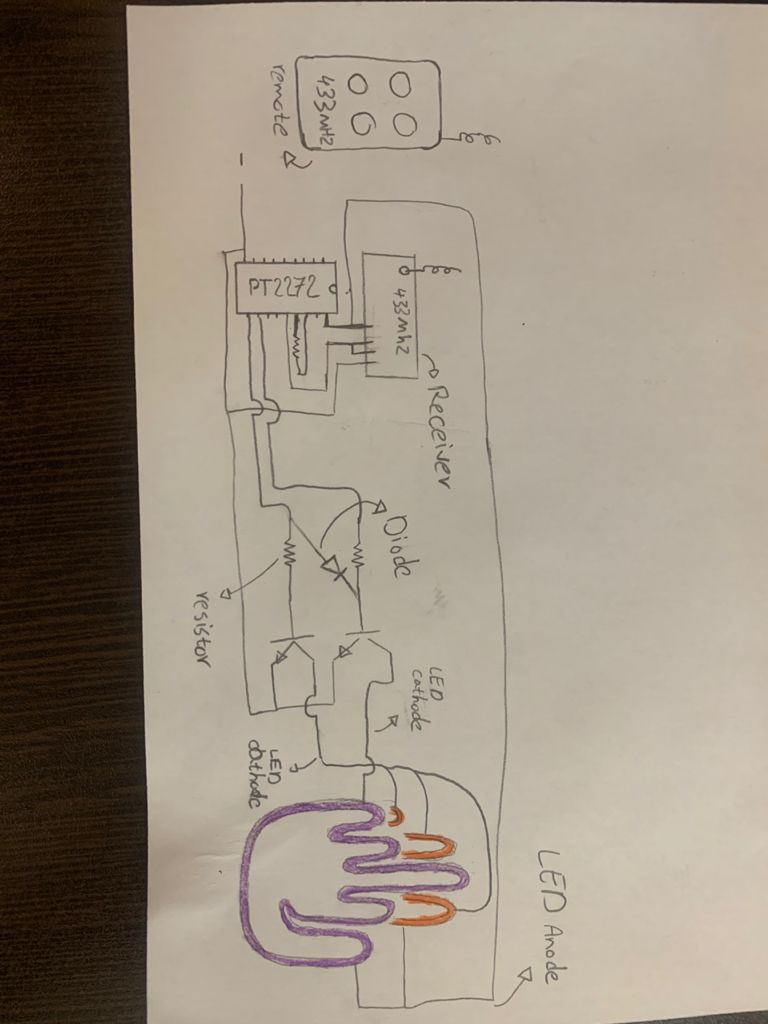 remote
433MHz
PT2272
433Mhz
Receiver
Diode
resistor
LED
cathode
LED
cathode
LED Anode